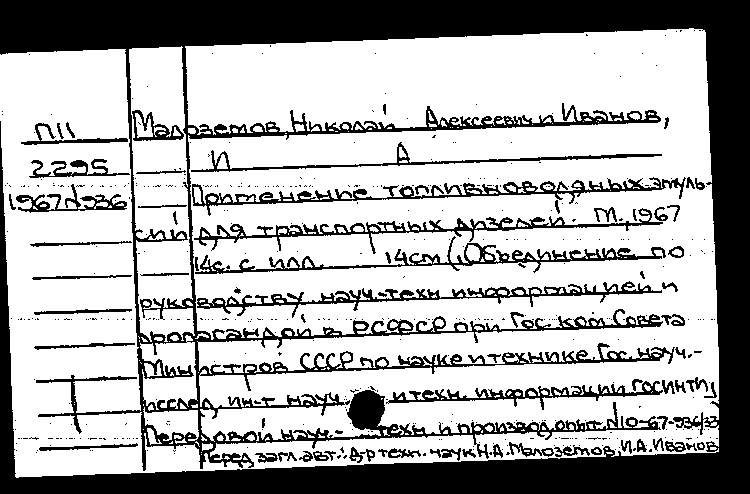 П11 Малоземов, Николай Алексеевич и Иванов,
2295 И А
1967№936 Применение топливноводяных эмуль-
сий для транспортных дизелей. М., 1967
14с. с илл. 14см (Объединение по
руководству науч.-техн информацией и
пропагандой в РСФСР при Гос. ком. Совета
Министров СССР по науке и технике. Гос. науч.-
исслед. ин-т науч. и техн. информации ГОСИНТИ,
Передовой науч.- техн. и производ. опыт. №10-67-936/33
Перед загл. авт.: Д-р техн. наук Н.А. Малоземов, И.А. Иванов